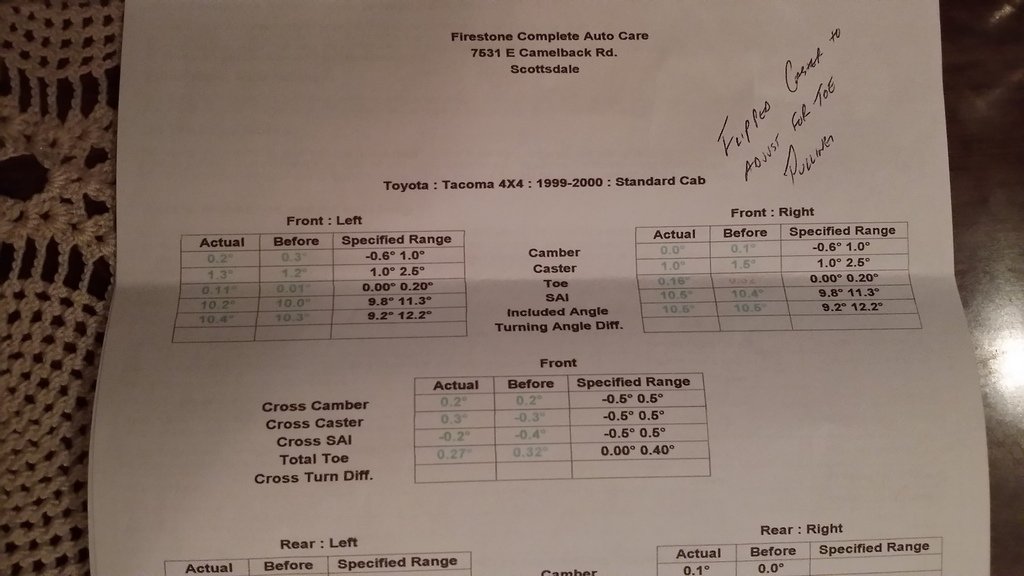 Firestone Complete Auto Care
7531 E Camelback Rd.
Scottsdale
Flipped Caster to
Adjust for Toe
Pulling
Toyota : Tacoma 4X4 : 1999-2000 : Standard Cab
Front : Left
Actual Before Specified Range
0.2° 0.3° -0.6° 1.0°
1.3° 1.2° 1.0° 2.5°
0.11° 0.01° 0.00° 0.20°
10.2° 10.0° 9.8° 11.3°
10.4° 10.3° 9.2° 12.2°
Camber
Caster
Toe
SAI
Included Angle
Turning Angle Diff.
Front : Right
Actual Before Specified Range
0.0° 0.1° -0.6° 1.0°
1.0° 1.5° 1.0° 2.5°
0.16° 0.00° 0.20°
10.5° 10.4° 9.8° 11.3°
10.5° 10.5° 9.2° 12.2°
Front
Actual Before Specified Range
Cross Camber 0.2° 0.2° -0.5° 0.5°
Cross Caster 0.3° -0.3° -0.5° 0.5°
Cross SAI -0.2° -0.4° -0.5° 0.5°
Total Toe 0.27° 0.32° 0.00° 0.40°
Cross Turn Diff.
Rear : Left
Actual Before Specified Range
Camber
Rear : Right
Actual Before Specified Range
0.1° 0.0°